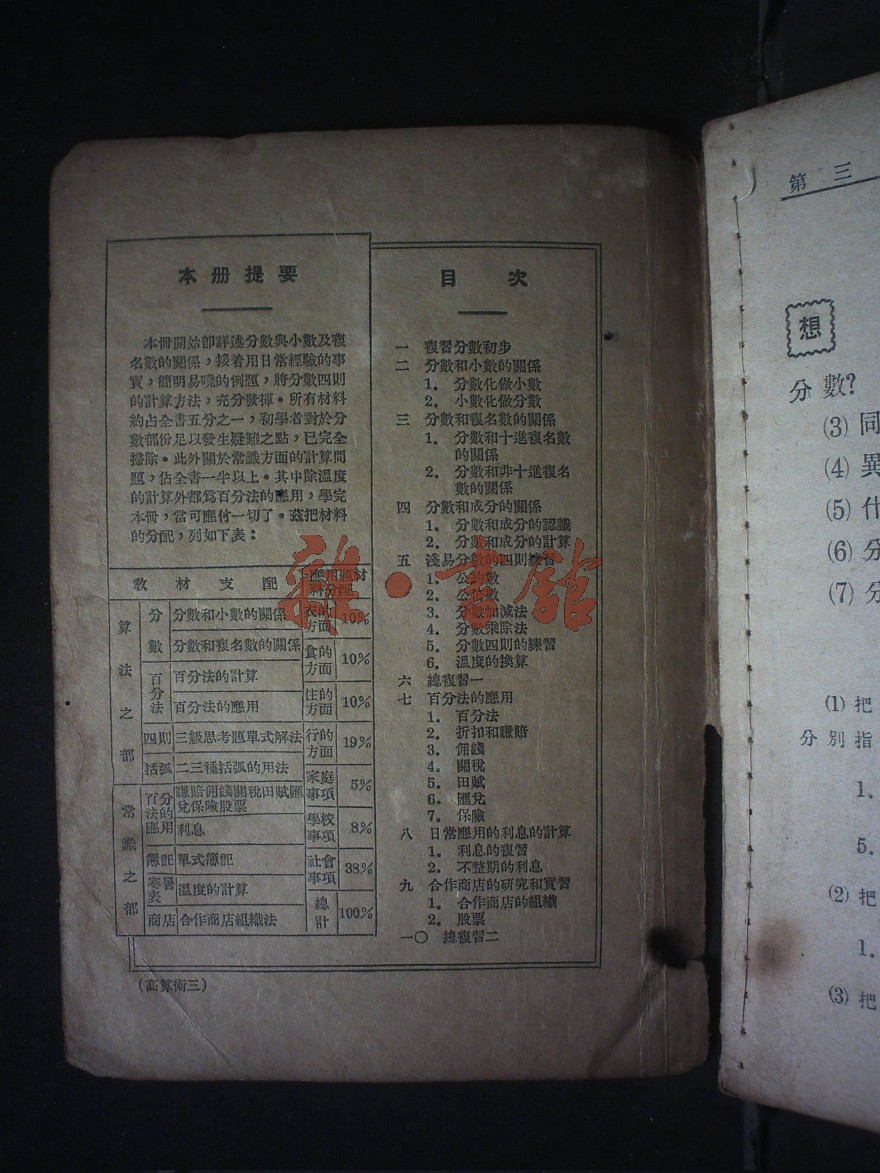 本冊提要
本冊開始卽詳述分數與小數及複
名數的關係，接着用日常經驗的事
實，簡明易曉的例題，將分數四則
的計算方法，充分發揮。所有材料
約占全書五分之一，初學者對於分
數部份足以發生疑難之點，已完全
掃除。此外關於常識方面的計算問
題，佔全書一半以上。其中除溫度
的計算外都爲百分法的應用，學完
本冊，當可應付一切了。茲把材料
的分配，列如下表：
教材支配
算法之部
分數
分數和小數的關係
分數和複名數的關係
百分法
百分法的計算
百分法的應用
四則
三級思考題單式解法
括弧
二三種括弧的用法
常識之部
百分法的應用
賺賠佣錢關稅田賦匯
兌保險股票
利息
簿記
單式簿記
寒暑表
溫度的計算
商店
合作商店組織法
應用題材
料分配
衣的方面 10%
食的方面 10%
住的方面 10%
行的方面 19%
家庭事項 5%
學校事項 8%
社會事項 38%
總計 100%
(高算術三)
目次
一 複習分數初步
二 分數和小數的關係
1. 分數化做小數
2. 小數化做分數
三 分數和複名數的關係
1. 分數和十進複名數
的關係
2. 分數和非十進複名
數的關係
四 分數和成分的關係
1. 分數和成分的認識
2. 分數和成分的計算
五 淺易分數的四則練習
1. 公約數
2. 公倍數
3. 分數加減法
4. 分數乘除法
5. 分數四則的練習
6. 溫度的換算
六 總複習一
七 百分法的應用
1. 百分法
2. 折扣和賺賠
3. 佣錢
4. 關稅
5. 田賦
6. 匯兌
7. 保險
八 日常應用的利息的計算
1. 利息的複習
2. 不整期的利息
九 合作商店的研究和實習
1. 合作商店的組織
2. 股票
一〇 總複習二
雜·書館
第三
想
分數?
(3) 同
(4) 異
(5) 什
(6) 分
(7) 分
(1) 把
分別指
1.
5.
(2) 把
1.
(3) 把